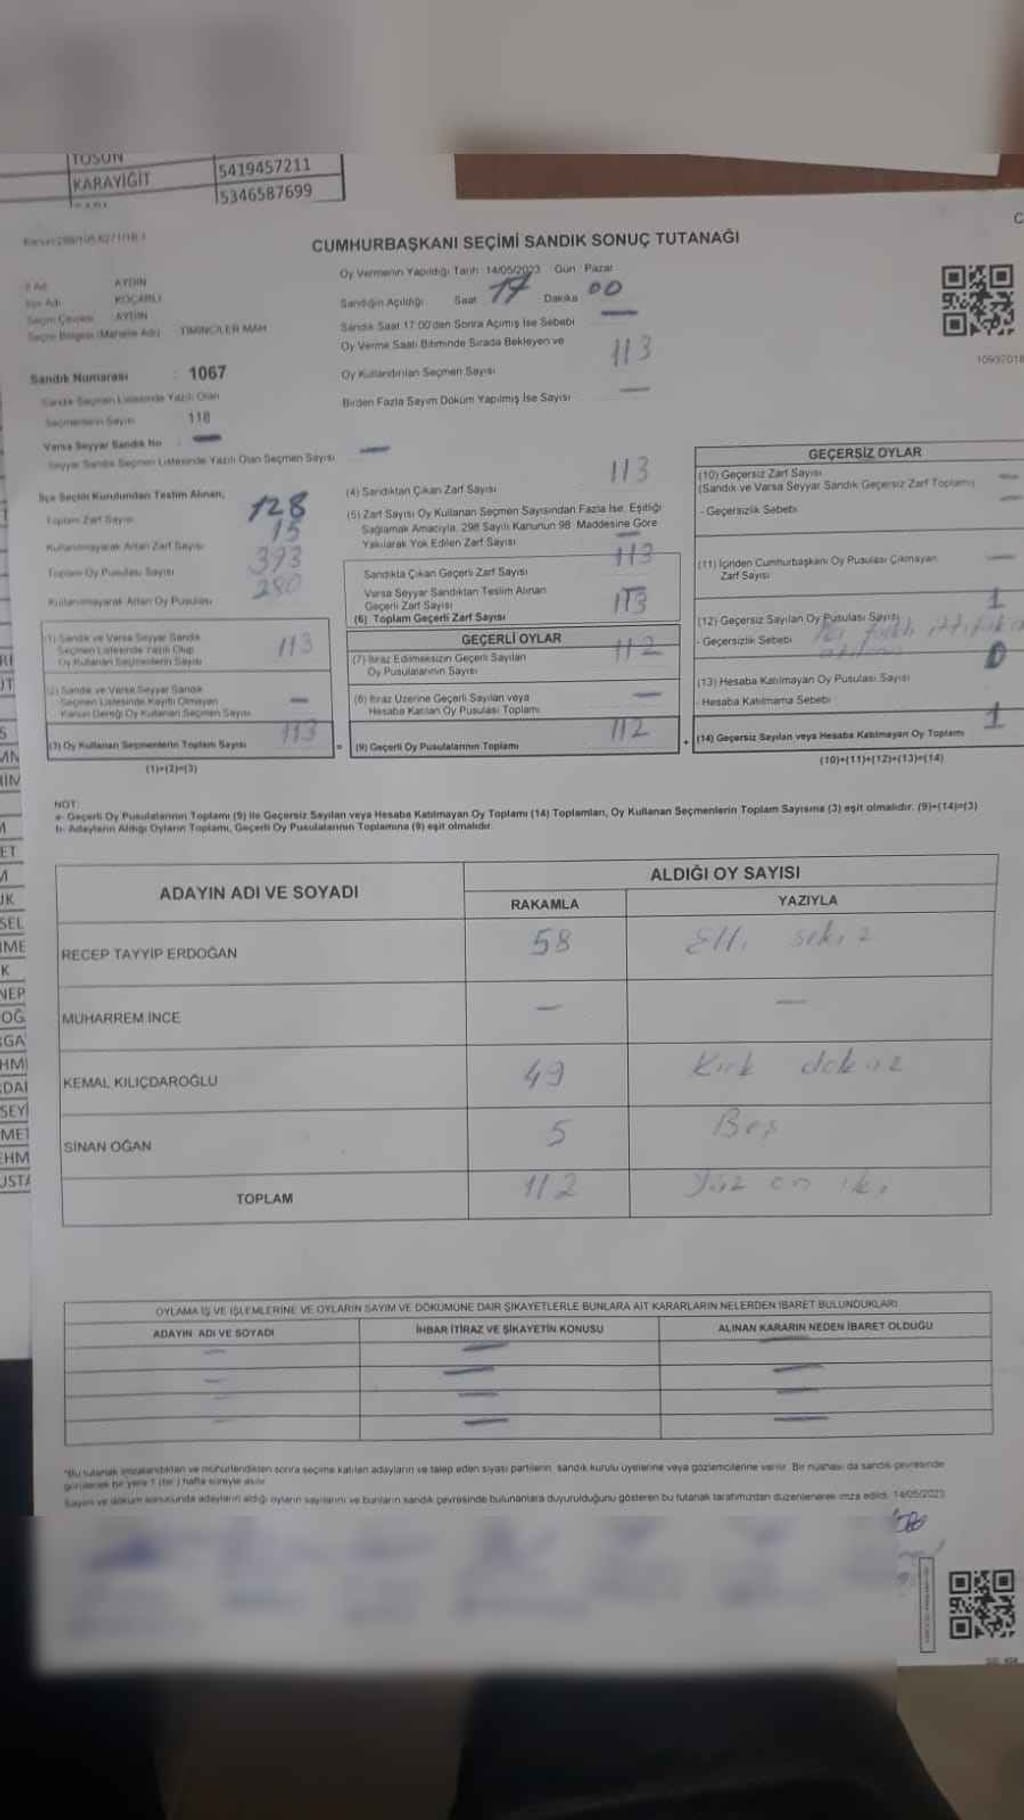 TOSUN
KARAYİĞİT 5419457211
5346587699
CUMHURBAŞKANI SEÇİMİ SANDIK SONUÇ TUTANAĞI
Oy Vermenin Yapıldığı Tarih 14/05/2023 Gün Pazar
Sandığın Açıldığı Saat 17 Dakika 00
Sandık Saat 17:00'den Sonra Açılmış İse Sebebi
Oy Verme Saati Bitiminde Sırada Bekleyen ve
Oy Kullandırılan Seçmen Sayısı 113
Birden Fazla Sayım Döküm Yapılmış İse Sayısı —
10937018
İl Adı AYDIN
İlçe Adı KOÇARLI
Seçim Çevresi AYDIN
Seçim Bölgesi (Mahalle Adı) TIMINCILER MAH
Sandık Numarası : 1067
Sandık Seçmen Listesinde Yazılı Olan
Seçmenlerin Sayısı 118
Varsa Seyyar Sandık No : —
Seyyar Sandık Seçmen Listesinde Yazılı Olan Seçmen Sayısı —
İlçe Seçim Kurulundan Teslim Alınan;
Toplam Zarf Sayısı 128
Kullanılmayarak Artan Zarf Sayısı 15
Toplam Oy Pusulası Sayısı 393
Kullanılmayarak Artan Oy Pusulası 280
(1) Sandık ve Varsa Seyyar Sandık
Seçmen Listesinde Yazılı Olup
Oy Kullanan Seçmenlerin Sayısı 113
(2) Sandık ve Varsa Seyyar Sandık
Seçmen Listesinde Kayıtlı Olmayan
Kanun Gereği Oy Kullanan Seçmen Sayısı —
(3) Oy Kullanan Seçmenlerin Toplam Sayısı 113
(1)+(2)=(3)
(4) Sandıktan Çıkan Zarf Sayısı 113
(5) Zarf Sayısı Oy Kullanan Seçmen Sayısından Fazla İse, Eşitliği
Sağlamak Amacıyla, 298 Sayılı Kanunun 98. Maddesine Göre
Yakılarak Yok Edilen Zarf Sayısı —
Sandıkta Çıkan Geçerli Zarf Sayısı 113
Varsa Seyyar Sandıktan Teslim Alınan
Geçerli Zarf Sayısı
(6) Toplam Geçerli Zarf Sayısı 113
GEÇERLİ OYLAR
(7) İtiraz Edilmeksizin Geçerli Sayılan
Oy Pusulalarının Sayısı 112
(8) İtiraz Üzerine Geçerli Sayılan veya
Hesaba Katılan Oy Pusulası Toplamı —
= (9) Geçerli Oy Pusulalarının Toplamı 112
GEÇERSİZ OYLAR
(10) Geçersiz Zarf Sayısı
(Sandık ve Varsa Seyyar Sandık Geçersiz Zarf Toplamı) —
- Geçersizlik Sebebi —
(11) İçinden Cumhurbaşkanı Oy Pusulası Çıkmayan
Zarf Sayısı —
(12) Geçersiz Sayılan Oy Pusulası Sayısı 1
- Geçersizlik Sebebi
(13) Hesaba Katılmayan Oy Pusulası Sayısı 0
- Hesaba Katılmama Sebebi
+ (14) Geçersiz Sayılan veya Hesaba Katılmayan Oy Toplamı 1
(10)+(11)+(12)+(13)=(14)
NOT:
a- Geçerli Oy Pusulalarının Toplamı (9) ile Geçersiz Sayılan veya Hesaba Katılmayan Oy Toplamı (14) Toplamları, Oy Kullanan Seçmenlerin Toplam Sayısına (3) eşit olmalıdır. (9)+(14)=(3)
b- Adayların Aldığı Oyların Toplamı, Geçerli Oy Pusulalarının Toplamına (9) eşit olmalıdır.
ADAYIN ADI VE SOYADI ALDIĞI OY SAYISI
RAKAMLA YAZIYLA
RECEP TAYYİP ERDOĞAN 58 Elli sekiz
MUHARREM İNCE — —
KEMAL KILIÇDAROĞLU 49 Kırk dokuz
SİNAN OĞAN 5 Beş
TOPLAM 112 Yüz on iki
OYLAMA İŞ VE İŞLEMLERİNE VE OYLARIN SAYIM VE DÖKÜMÜNE DAİR ŞİKAYETLERLE BUNLARA AİT KARARLARIN NELERDEN İBARET BULUNDUKLARI
ADAYIN ADI VE SOYADI İHBAR İTİRAZ VE ŞİKAYETİN KONUSU ALINAN KARARIN NEDEN İBARET OLDUĞU
— — —
— — —
— — —
— — —
*Bu tutanak imzalandıktan ve mühürlendikten sonra seçime katılan adayların ve talep eden siyasi partilerin, sandık kurulu üyelerine veya gözlemcilerine verilir. Bir nüshası da sandık çevresinde
görülecek bir yere 1 (bir) hafta süreyle asılır.
Sayım ve döküm sonucunda adayların aldığı oyların sayılarını ve bunların sandık çevresinde bulunanlara duyurulduğunu gösteren bu tutanak tarafımızdan düzenlenerek imza edildi. 14/05/2023